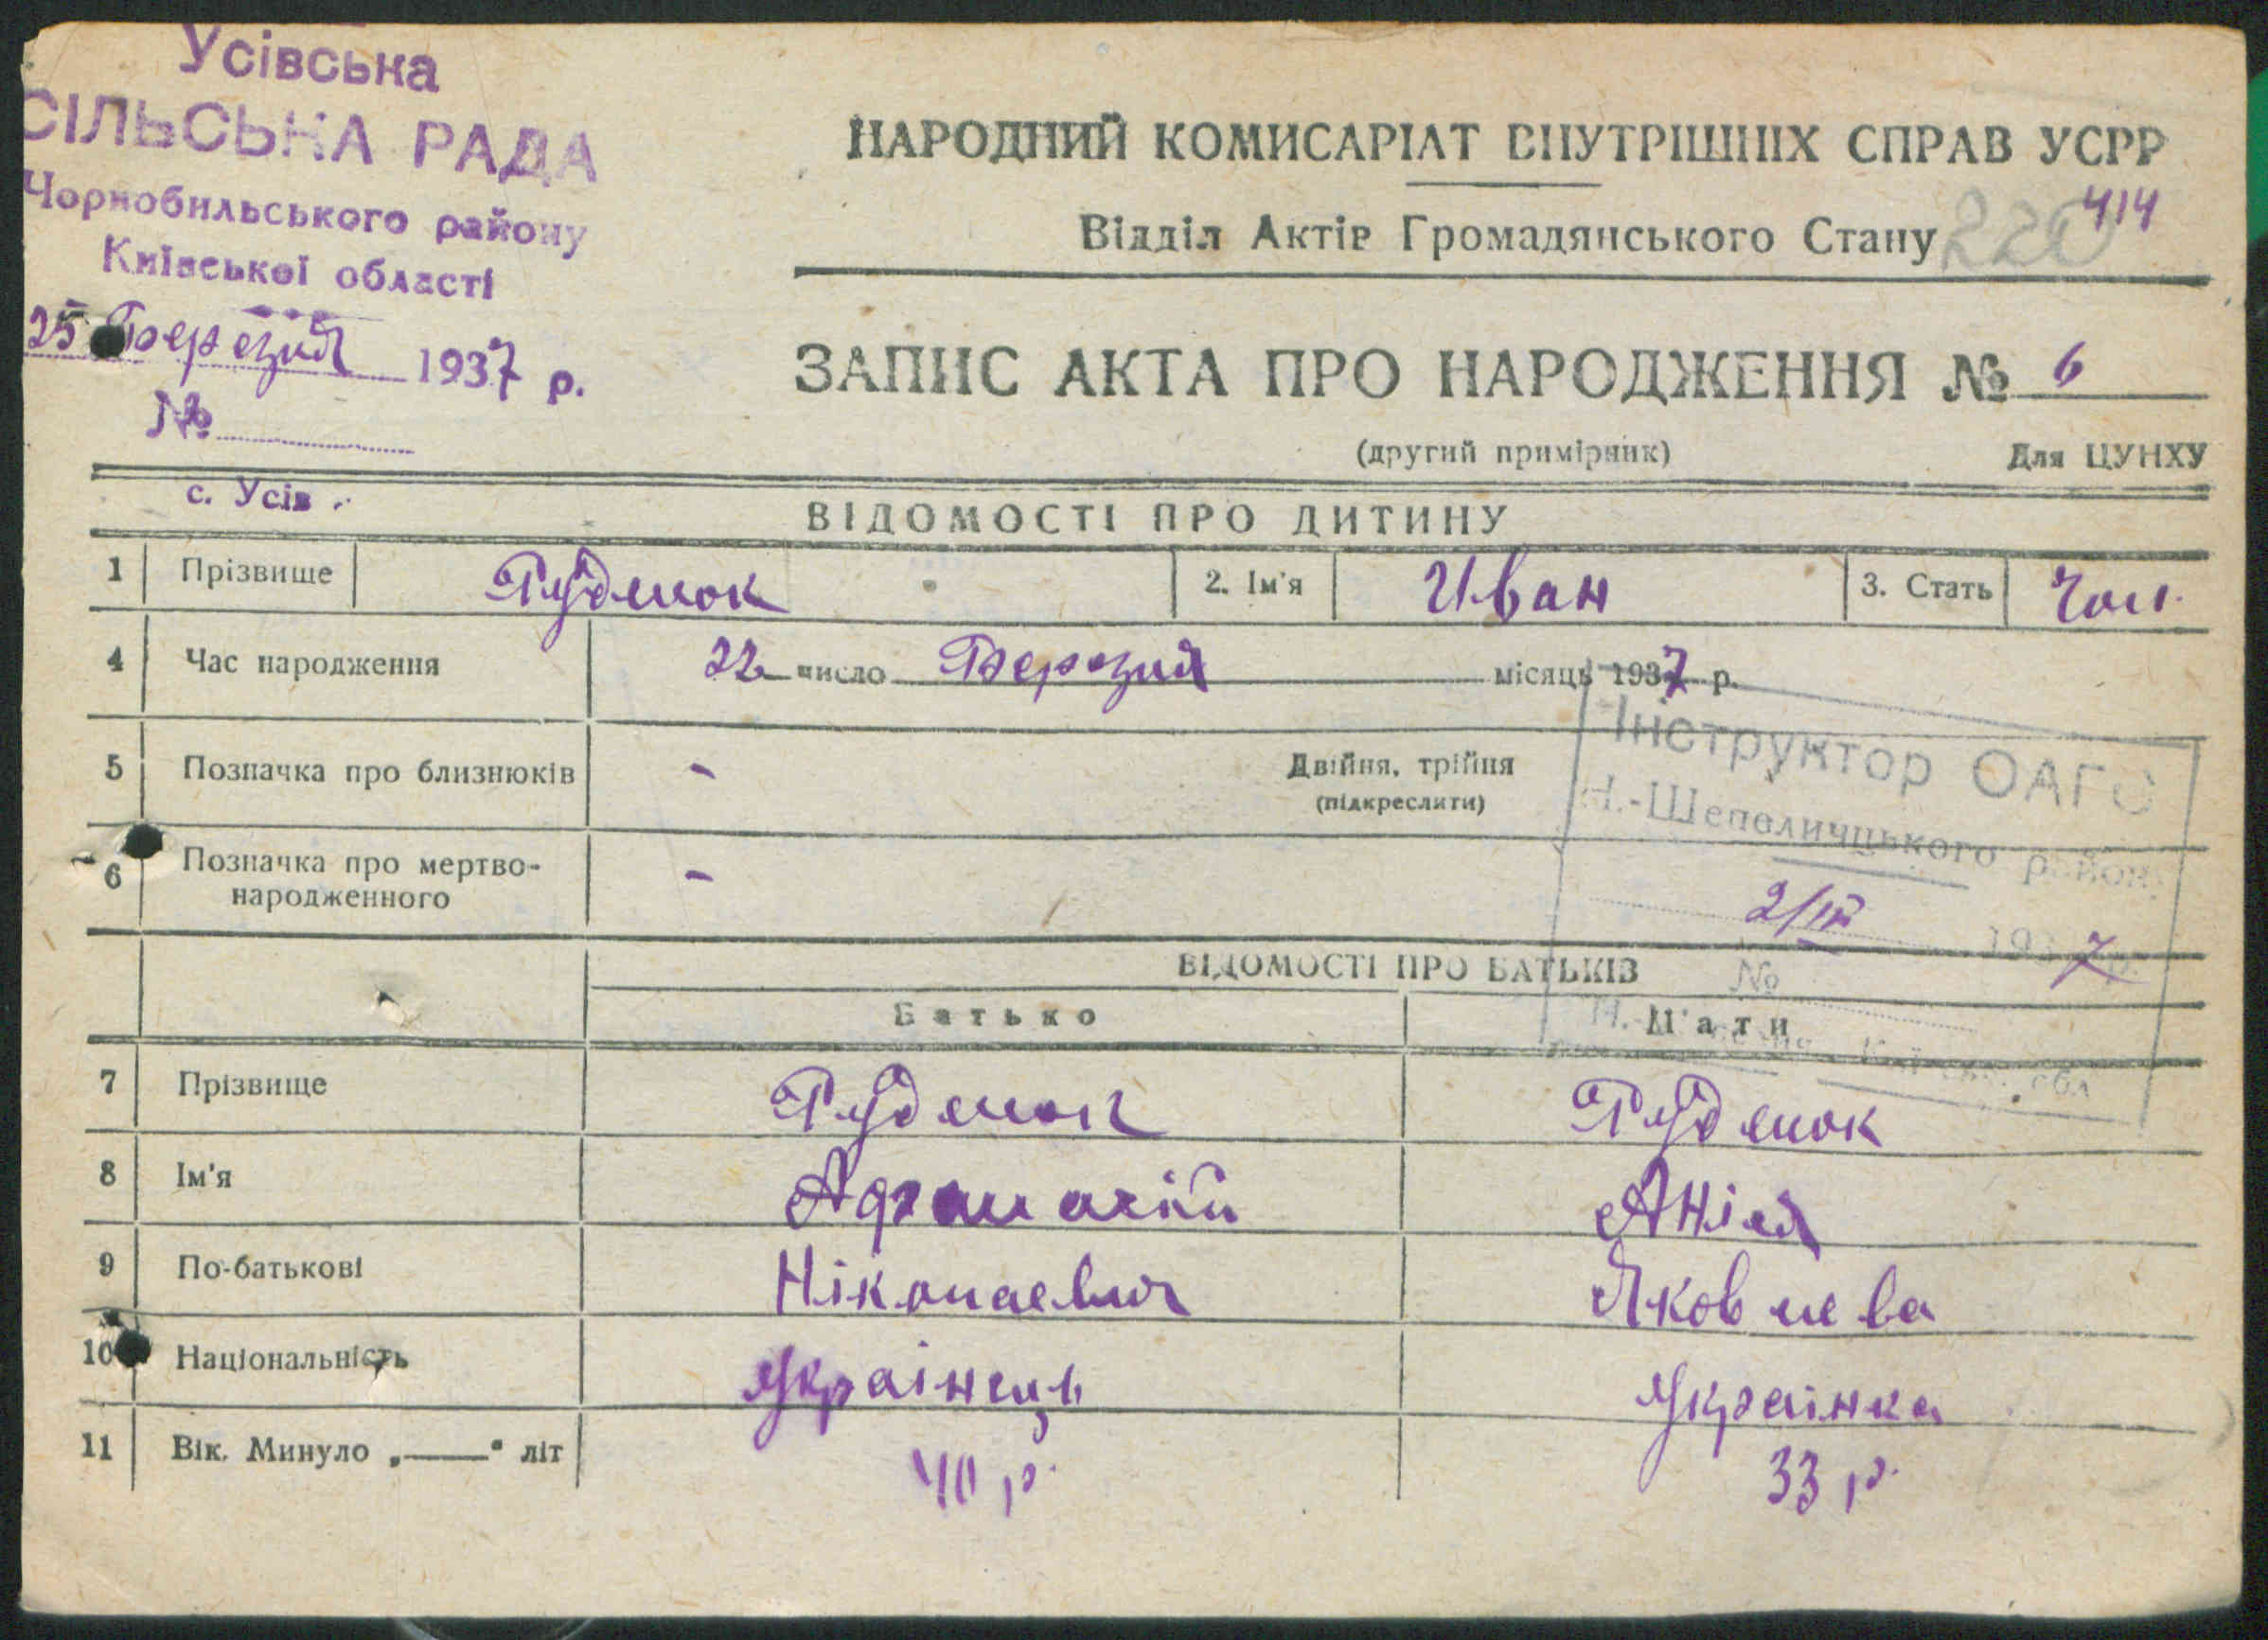 Усівська
СІЛЬСЬКА РАДА
Чорнобильського району
Київської області
25 Березня 1937 р.
№
с. Усів
НАРОДНИЙ КОМИСАРІАТ ВНУТРІШНІХ СПРАВ УСРР
Відділ Актів Громадянського Стану 220 414
ЗАПИС АКТА ПРО НАРОДЖЕННЯ № 6
(другий примірник) Для ЦУНХУ
ВІДОМОСТІ ПРО ДИТИНУ
1 Прізвище Руденок 2. Ім'я Иван 3. Стать Чол.
4 Час народження 22 число Березня місяць 1937 р.
Інструктор ОАГС
5 Позначка про близнюків - Двійня, трійня
(підкреслити)
Н.-Шепеличцького район
6 Позначка про мертво-
народженного -
2/IV 1937 р.
№
ВІДОМОСТІ ПРО БАТЬКІВ
Батько Мати
7 Прізвище Руденок Руденок
8 Ім'я Афанасій
9 По-батькові Ніколаевич Яковлева
10 Національність Українець Українка
11 Вік. Минуло „——" літ 40 р. 33 р.